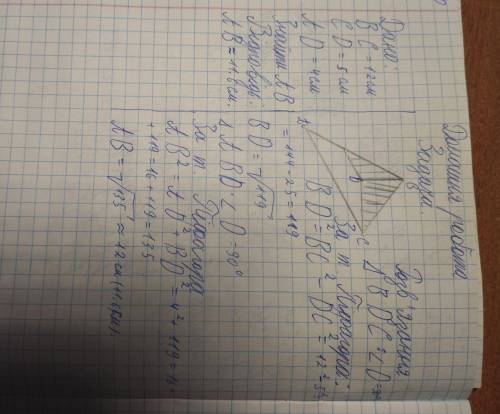 Домашня робота
Задача.
Дано:
BC = 12 см
CD = 5 см
AD = 4 см
Знайти AB
Відповідь:
AB ≈ 11,6 см.
A
B
C
D
Розв'язання
Δ BDC ∠D = 90°
За т. Піфагора:
BD² = BC² - DC² = 12² - 5²
= 144 - 25 = 119
BD = √119
Δ ABD ∠D = 90°
За т. Піфагора
AB² = AD² + BD² = 4² + 119 = 16
+ 119 = 16 + 119 = 135
AB = √135 ≈ 12 см (11,6 см).